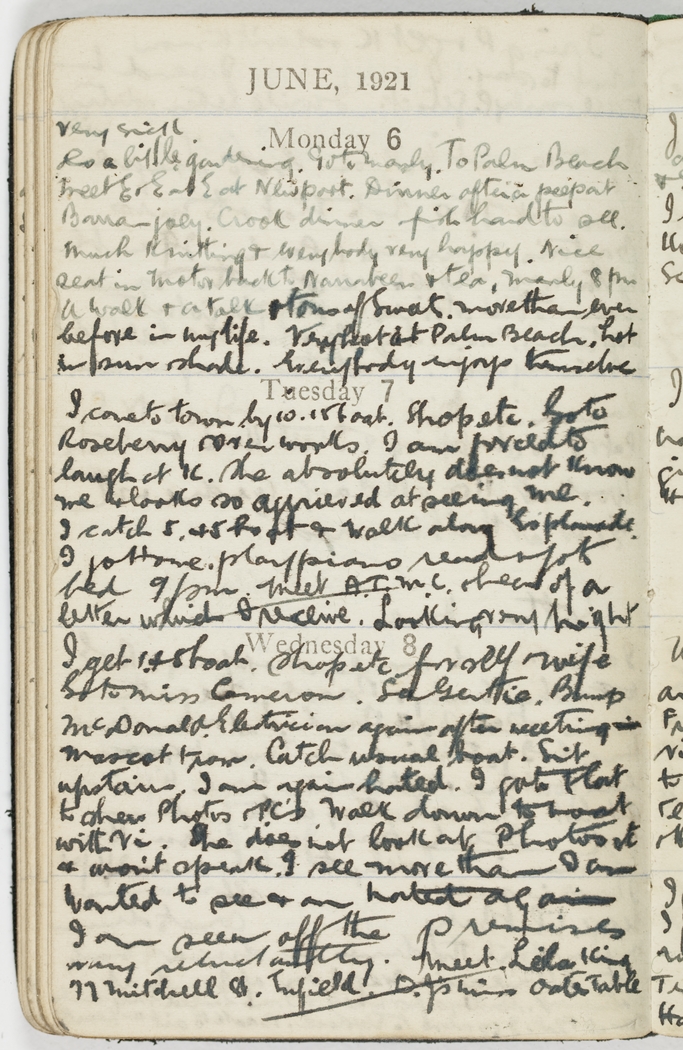 JUNE, 1921
very
Monday 6
Do a little gardening. Go to Manly. To Palm Beach
meet E & E at Newport. Dinner after a peep at
Barranjoey. Crook dinner fish hard to see.
Much Knitting & everybody very happy. Nice
seat in motor back to Narrabeen & tea, Manly 8 pm
A walk & a talk & tons of Swat. more than ever
before in my life. Very hot at Palm Beach, hot
in sun shade. Everybody enjoys themselve
Tuesday 7
I come to town by 10.15 boat. Shop etc. Go to
Roseberry works. I am forced to
laugh at K. She absolutely does not know
me & looks so aggrieved at seeing me.
I catch 5.45 boat & walk along Esplanade.
I go Home. play piano read &
bed 9 pm. Meet A.T. Mc. of a
letter which I receive. Looking very bright
Wednesday 8
I get 1.45 boat. Shop etc for self & wife
Go to Miss Cameron. See Gertie. Bump
McDonald Electrician again after meeting in
Mascot tram. Catch usual boat. Sit
upstairs. I am again hated. I go to Flat
to show Photos & PC's Walk down to boat
with Vi. She does not look at Photos
& won't speak. I see more than I am
wanted to see & am hated again
I am seen off the premises
very reluctantly. Meet Lila King
77 Mitchell St. Enfield.